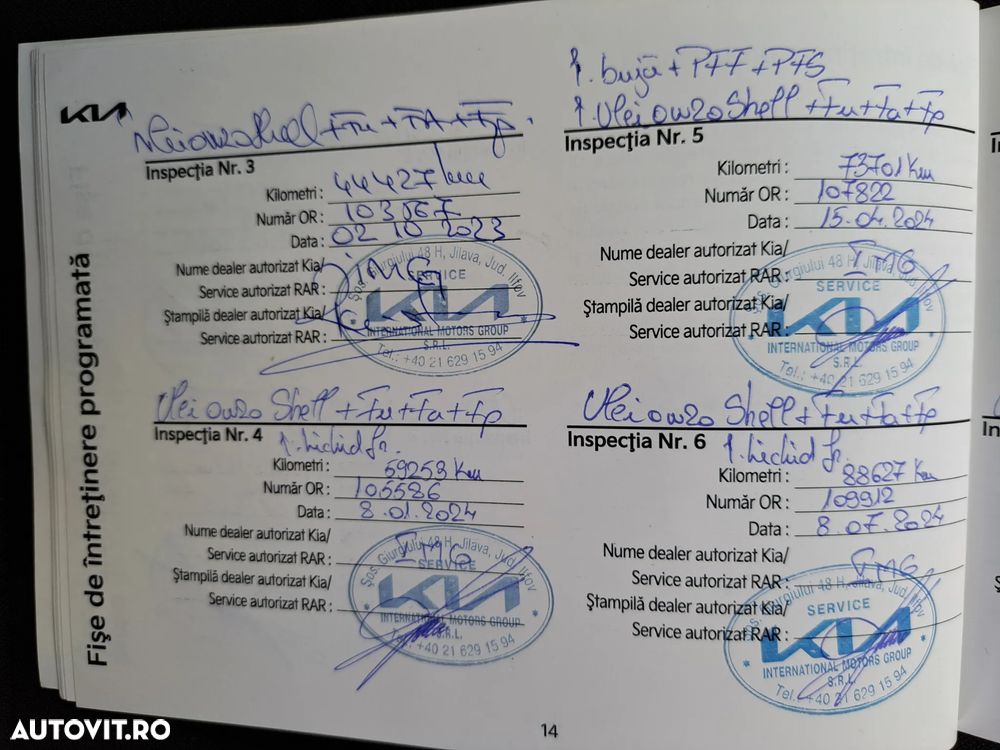 KIA
Fişe de întreţinere programată
Ulei 0W20 Shell + Fu + FA + Fp.
Inspecţia Nr. 3
Kilometri : 44427 km
Număr OR : 103567
Data : 02 10 2023
Nume dealer autorizat Kia/ IMG
Service autorizat RAR :
Ştampilă dealer autorizat Kia/
Service autorizat RAR :
Şos. Giurgiului 48 H, Jilava, Jud. Ilfov
SERVICE
KIA
INTERNATIONAL MOTORS GROUP
S.R.L.
Tel.: +40 21 629 15 94
Ulei 0W20 Shell + Fu + Fa + Fp
Inspecţia Nr. 4
1. Lichid fr.
Kilometri : 59253 Km
Număr OR : 105586
Data : 8.01.2024
Nume dealer autorizat Kia/
Service autorizat RAR : IMG
Ştampilă dealer autorizat Kia/
Service autorizat RAR :
Şos. Giurgiului 48 H, Jilava, Jud. Ilfov
SERVICE
KIA
INTERNATIONAL MOTORS GROUP
S.R.L.
Tel.: +40 21 629 15 94
1. bujii + PFF + PFS
1. Ulei 0W20 Shell + Fu + Fa + Fp
Inspecţia Nr. 5
Kilometri : 73701 Km
Număr OR : 107822
Data : 15.04.2024
Nume dealer autorizat Kia/ IMG
Service autorizat RAR :
Ştampilă dealer autorizat Kia/
Service autorizat RAR :
Şos. Giurgiului 48 H, Jilava, Jud. Ilfov
SERVICE
KIA
INTERNATIONAL MOTORS GROUP
S.R.L.
Tel.: +40 21 629 15 94
Ulei 0W20 Shell + Fu + Fa + Fp
Inspecţia Nr. 6
1. Lichid fr.
Kilometri : 88627 Km
Număr OR : 109912
Data : 8.07.2024
Nume dealer autorizat Kia/ IMG
Service autorizat RAR :
Ştampilă dealer autorizat Kia/
Service autorizat RAR :
Şos. Giurgiului 48 H, Jilava, Jud. Ilfov
SERVICE
KIA
INTERNATIONAL MOTORS GROUP
S.R.L.
Tel.: +40 21 629 15 94
14
AUTOVIT.RO